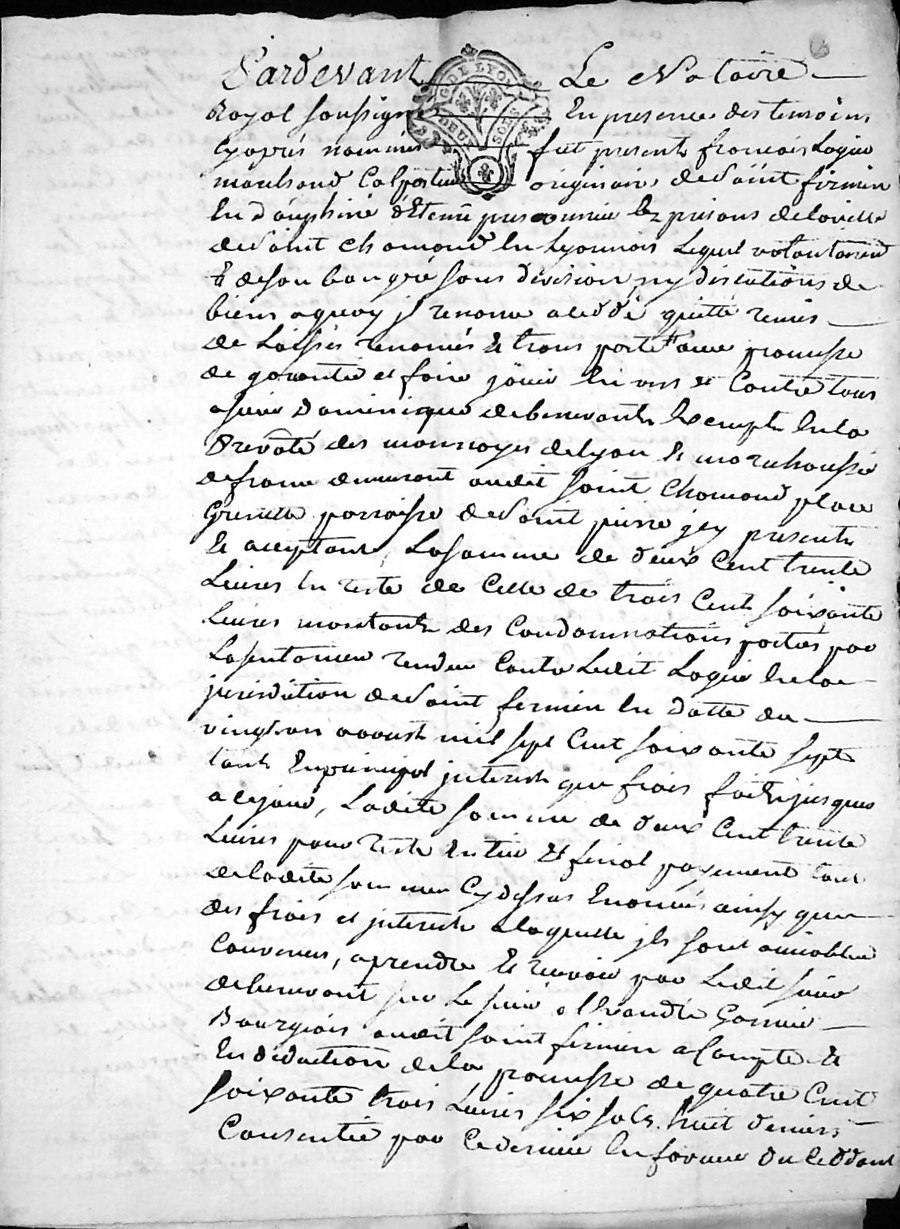 Pardevant Le Notaire
Royal soussigné En presence des temoins
Cyaprés nommés fut present françois Logié
marchand Colporteur originaire de Saint firmin
En Dauphiné détenu prisonnier Ez prisons de la ville
de Saint chamond En Lyonnois Lequel volontairement
& de son bon gré sans division, ny discutions de
biens a quoy jl renonce a ceddé quitté remis
de Laissés renoncés & transporté avec promesse
de garantie et faire jouir Envers et Contre tous
a sieur Dominique debenevant Exempt En la
Prevôté des monnoyes de Lyon & marechaussé
de france demeurant audit saint Chamond place
Grenette parroisse de Saint pierre jcy present
& acceptant, La somme de deux Cent trente
Livres En reste de Celle de trois Cent soixante
Livres montant des Condamnations portées par
La sentence rendue Contre Ledit Logié En la
jurisdiction de Saint firmin En datte du
vingt aoust mil sept Cent soixante sept
tant En principal jnterest que frais faits jusques
a ce jour, Ladite somme de deux Cent trente
Livres pour reste Entier & final payement tant
de ladite somme Cy dessus Enoncée ainsy que
des frais et jnterest a laquelle jls sont amiablement
Convenus, a prendre & recevoir par Ledit sieur
debenevant sur Le sieur allexandre Garnier
Bourgeois audit saint firmin a Compte &
En déduction de la promesse de quatre Cent
soixante trois Livres six sols huit deniers
Consentie par Ce dernier En faveur du Ceddant